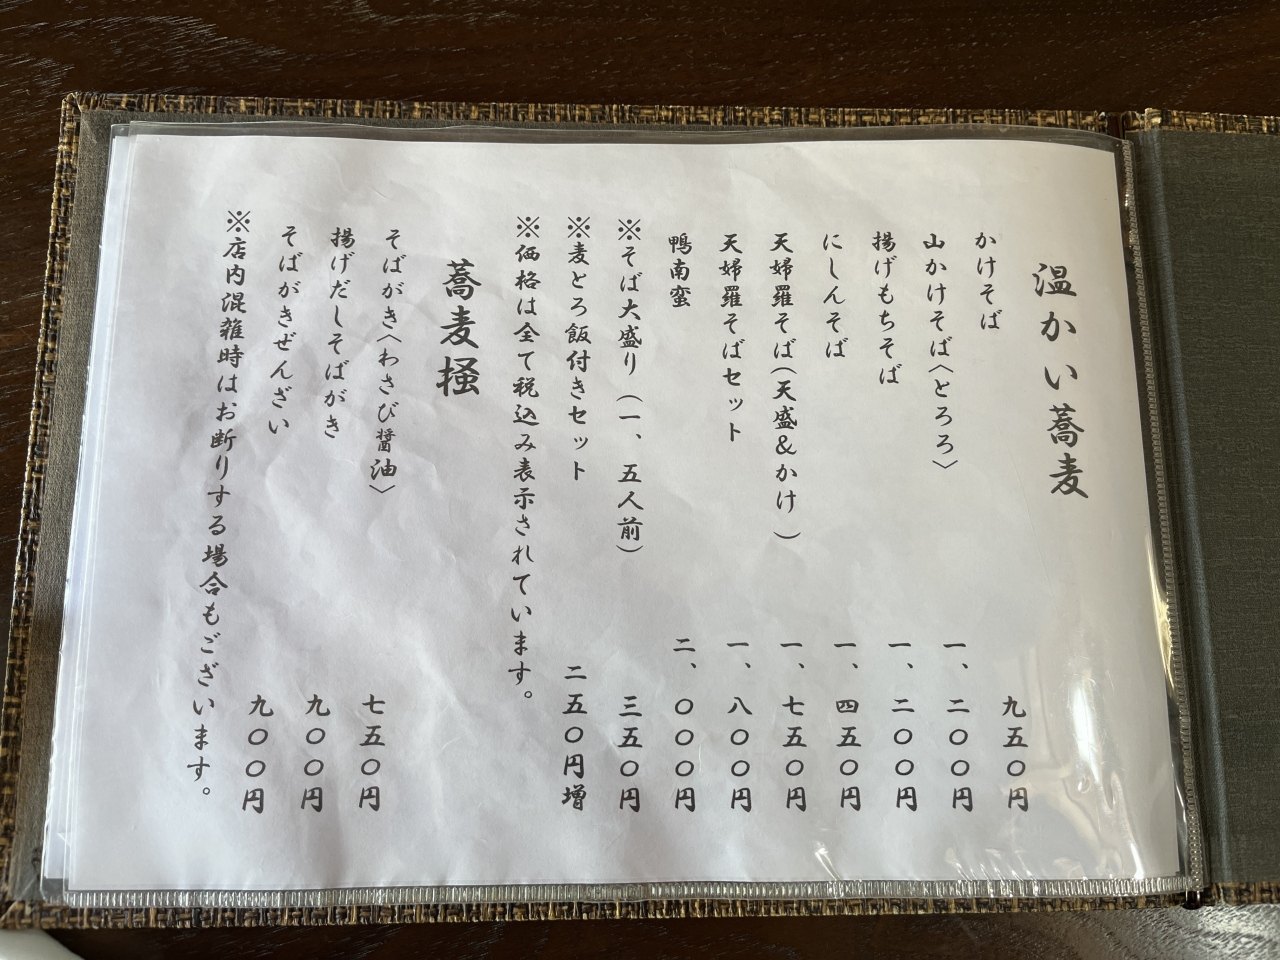 温かい蕎麦
かけそば 九五〇円
山かけそば〈とろろ〉 一、二〇〇円
揚げもちそば 一、二〇〇円
にしんそば 一、四五〇円
天婦羅そば(天盛&かけ) 一、七五〇円
天婦羅そばセット 一、八〇〇円
鴨南蛮 二、〇〇〇円
※そば大盛り(一、五人前) 三五〇円
※麦とろ飯付きセット 二五〇円増
※価格は全て税込み表示されています。
蕎麦掻
そばがき〈わさび醤油〉 七五〇円
揚げだしそばがき 九〇〇円
そばがきぜんざい 九〇〇円
※店内混雑時はお断りする場合もございます。